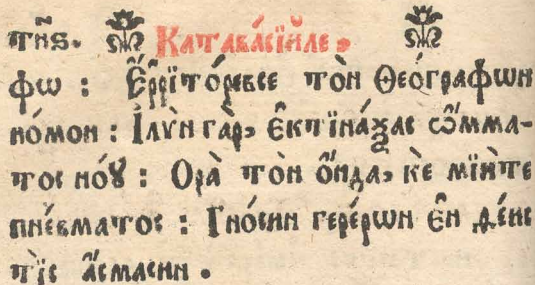 тнѕ. Катавасїиле,
фѡ : Е҆́ррїто́ревсе то̀н Ѳео́графѡн
но́мон : І҆лѵ̀н га̀р, є҆ктїна́ѯас ѡ҆́мма-
тос но́ꙋ : Ора̀ то̀н ѻ҆́нда, кѐ мїи́те
пне́вматос : Гно́син гере́рѡн є҆н де́ис
тїс а҆́смасин .